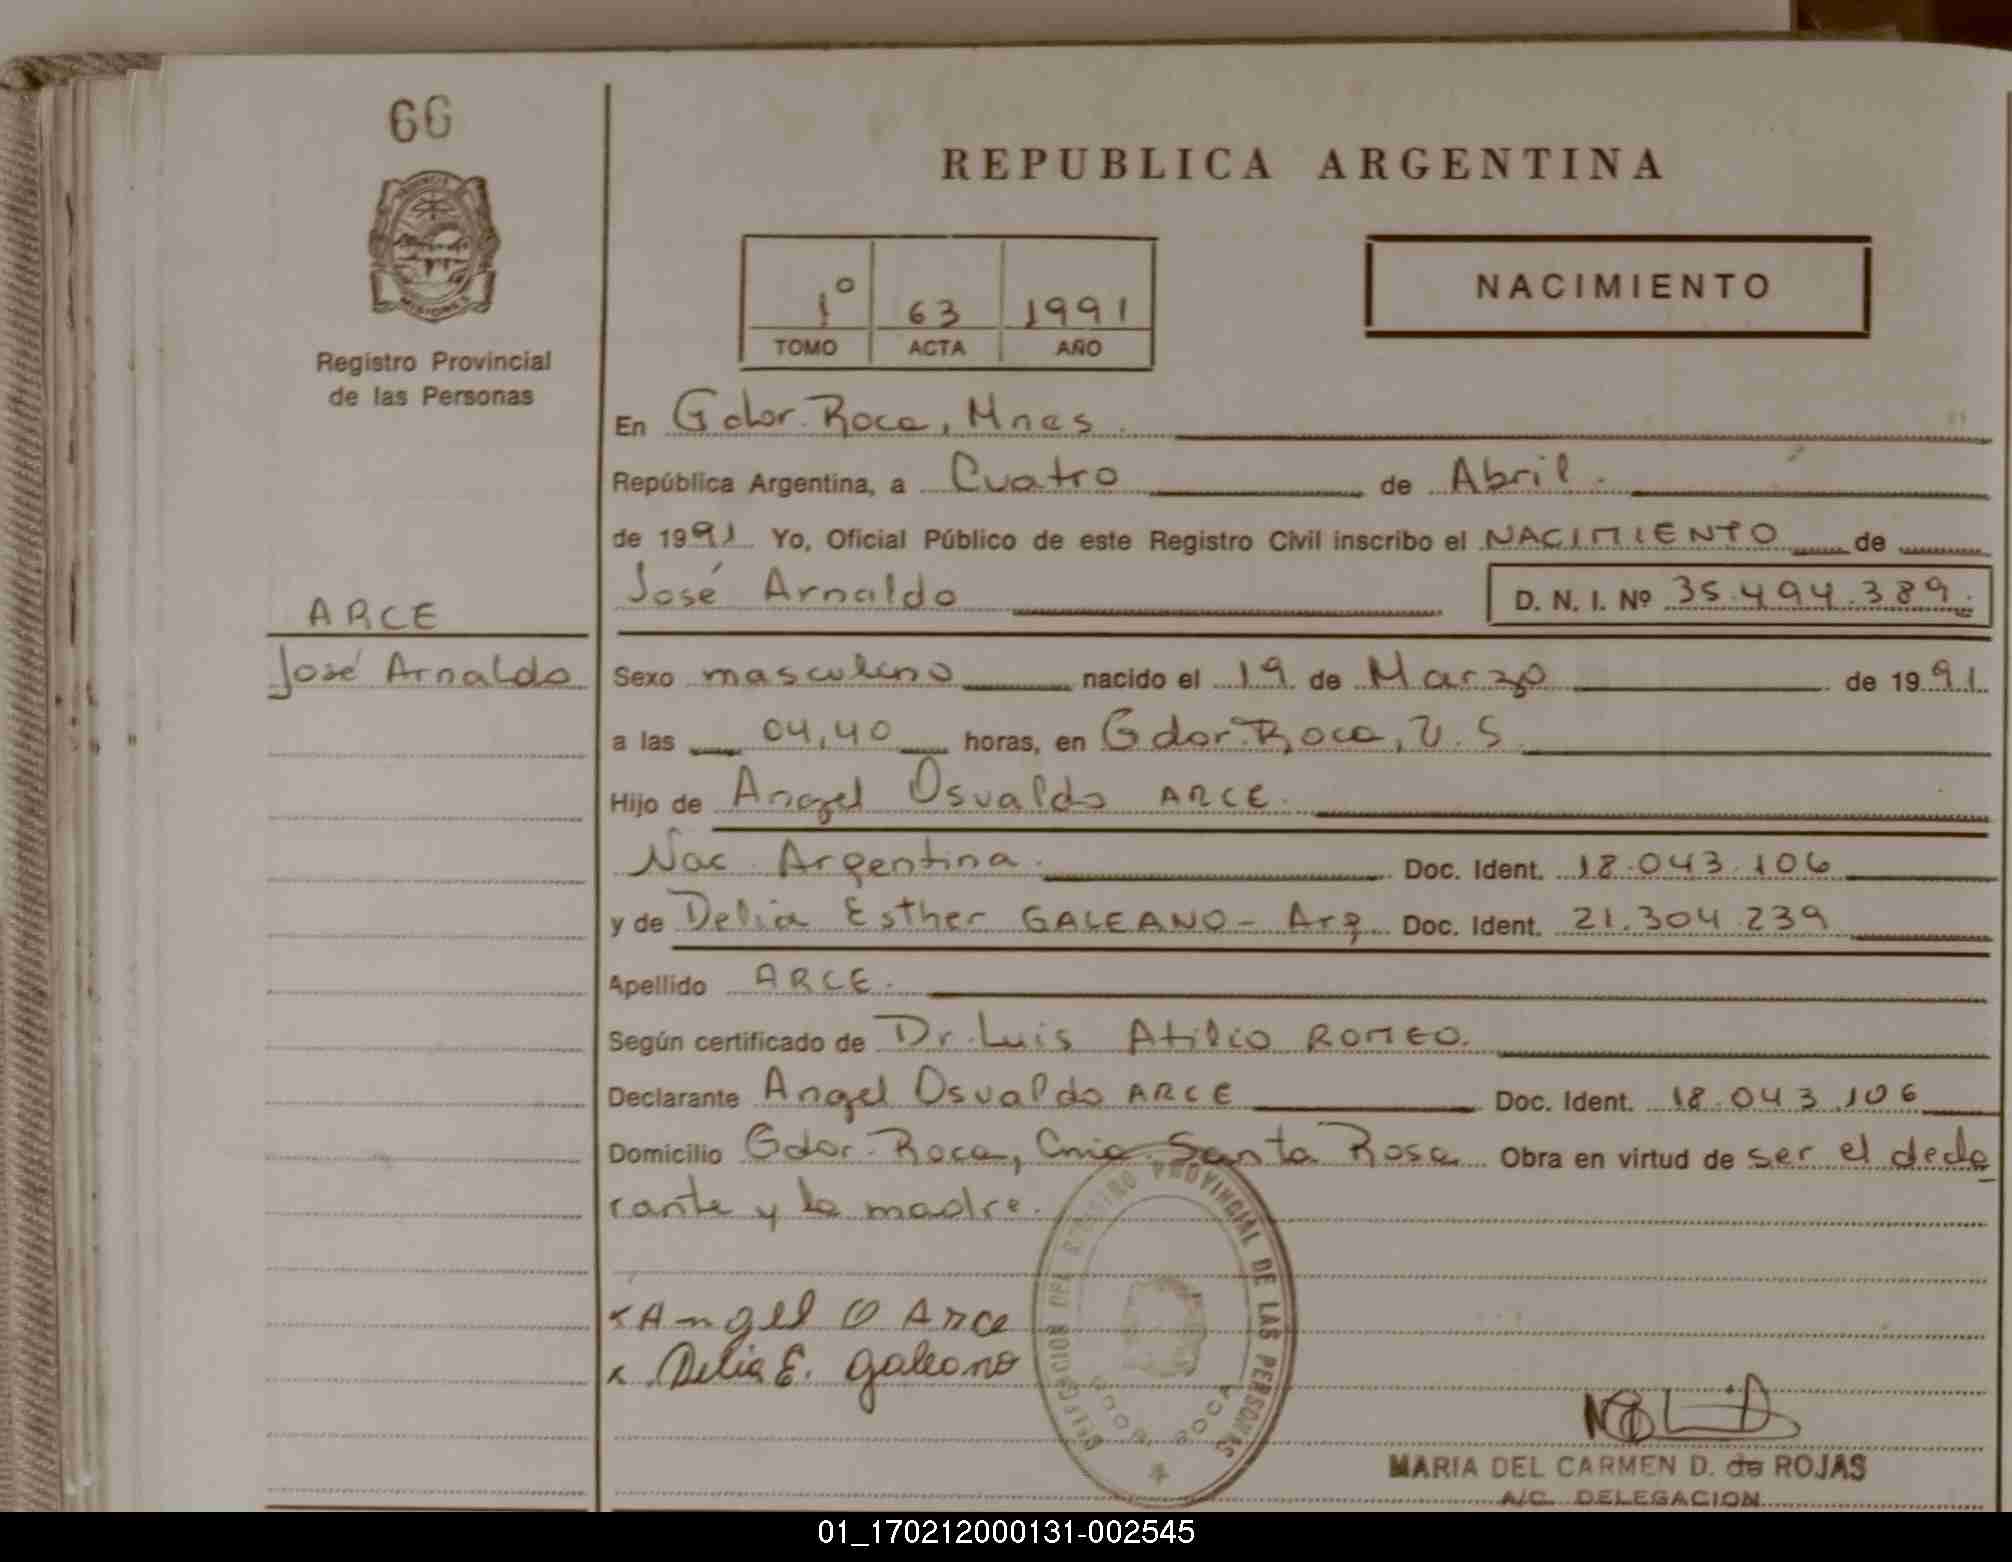 66
MISIONES
Registro Provincial
de las Personas
REPUBLICA ARGENTINA
NACIMIENTO
1º 63 1991
TOMO ACTA AÑO
En Gdor. Roca, Mnes.
República Argentina, a Cuatro de Abril.
de 1991 Yo, Oficial Público de este Registro Civil inscribo el NACIMIENTO de
José Arnaldo D. N. I. Nº 35.494.389.
ARCE
José Arnaldo
Sexo masculino nacido el 19 de Marzo de 1991.
a las 04,40 horas, en Gdor. Roca, U. S
Hijo de Angel Osvaldo ARCE.
Nac. Argentina. Doc. Ident. 18.043.106
y de Delia Esther GALEANO - Arg. Doc. Ident. 21.304.239
Apellido ARCE.
Según certificado de Dr. Luis Atilio ROMEO.
Declarante Angel Osvaldo ARCE Doc. Ident. 18.043.106
Domicilio Gdor. Roca, Cnia. Santa Rosa Obra en virtud de ser el decla
rante y la madre.
x Angel O Arce
x Delia E. Galeano
REGISTRO PROVINCIAL DE LAS PERSONAS
ROCA
MARIA DEL CARMEN D. de ROJAS
A/C. DELEGACION
01_170212000131-002545